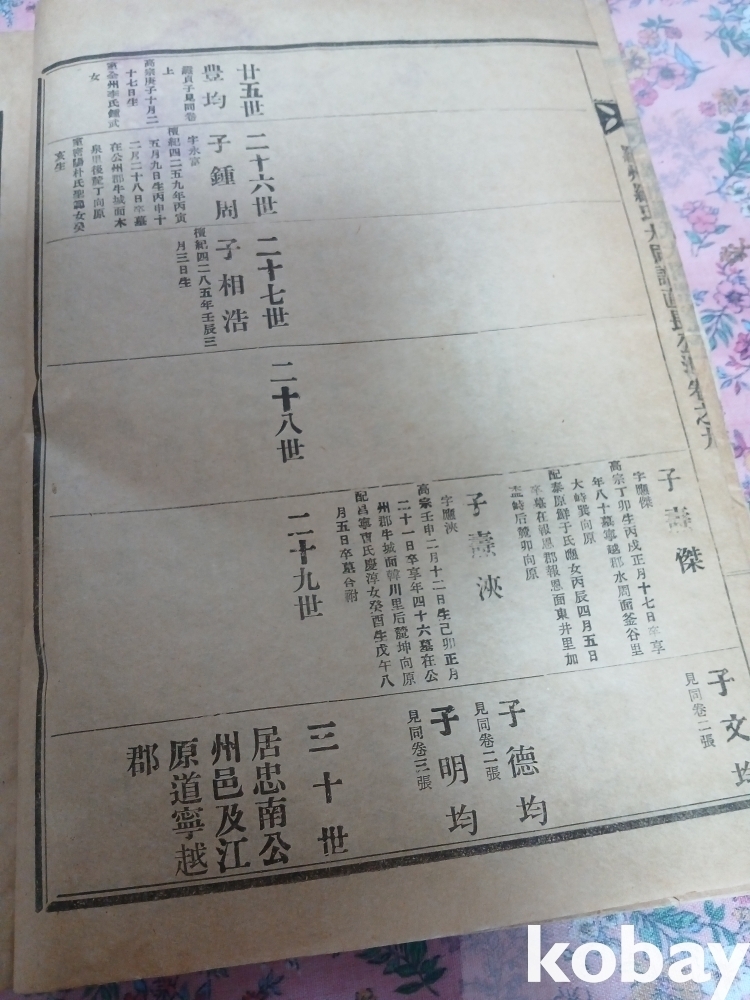 子壽傑
字應傑
高宗丁卯生丙戌正月十七日卒享
年八十墓寧越郡水周面釜谷里
大峙巽向原
配泰原鮮于氏 女丙辰四月五日
卒墓在報恩郡報恩面東井里加
峙后麓卯向原
子 浹
字應浹
高宗壬申二月十二日生己卯正月
二十一日卒享年四十六墓在公
州郡牛城面韓川里后麓坤向原
配昌寧曺氏慶淳女癸酉生戊午八
月五日卒墓合祔
子文均
見同卷二張
子德均
見同卷二張
子明均
見同卷三張
廿五世
二十六世
二十七世
二十八世
二十九世
三十世
豊均
見同卷
上
高宗庚子十月二
十七日生
室全州李氏鍾武
女
子鍾周
字永富
檀紀四二五九年丙寅
五月九日生丙申十
二月二十八日卒墓
在公州郡牛城面木
泉里後麓丁向原
室密陽朴氏聖錦女癸
亥生
子相浩
檀紀四二八五年壬辰三
月三日生
居忠南公
州邑及江
原道寧越
郡
kobay